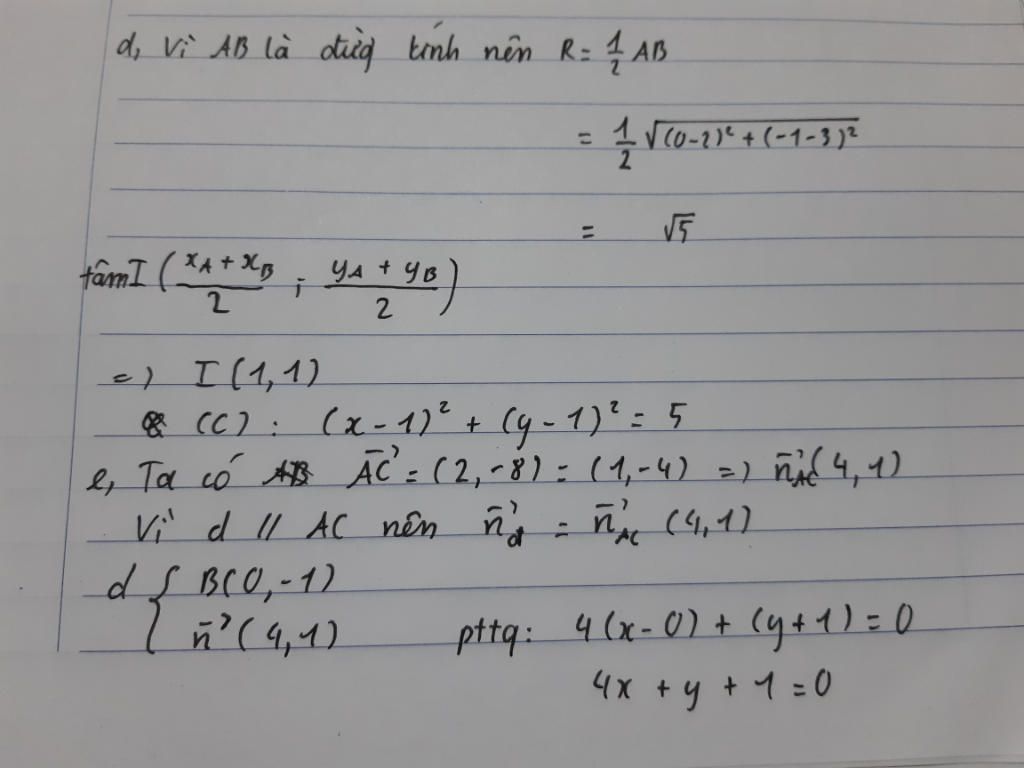 d, Vì AB là đường kính nên R = 1/2 AB
= 1/2 √((0-2)² + (-1-3)²)
= √5
tâm I ( (x_A + x_B)/2 ; (y_A + y_B)/2 )
=) I (1,1)
(C) : (x - 1)² + (y - 1)² = 5
e, Ta có AC⃗ = (2, -8) = (1, -4) =) n⃗_AC (4, 1)
Vì d // AC nên n⃗_d = n⃗_AC (4, 1)
d { B(0, -1)
n⃗ (4, 1) pttq: 4(x - 0) + (y + 1) = 0
4x + y + 1 = 0